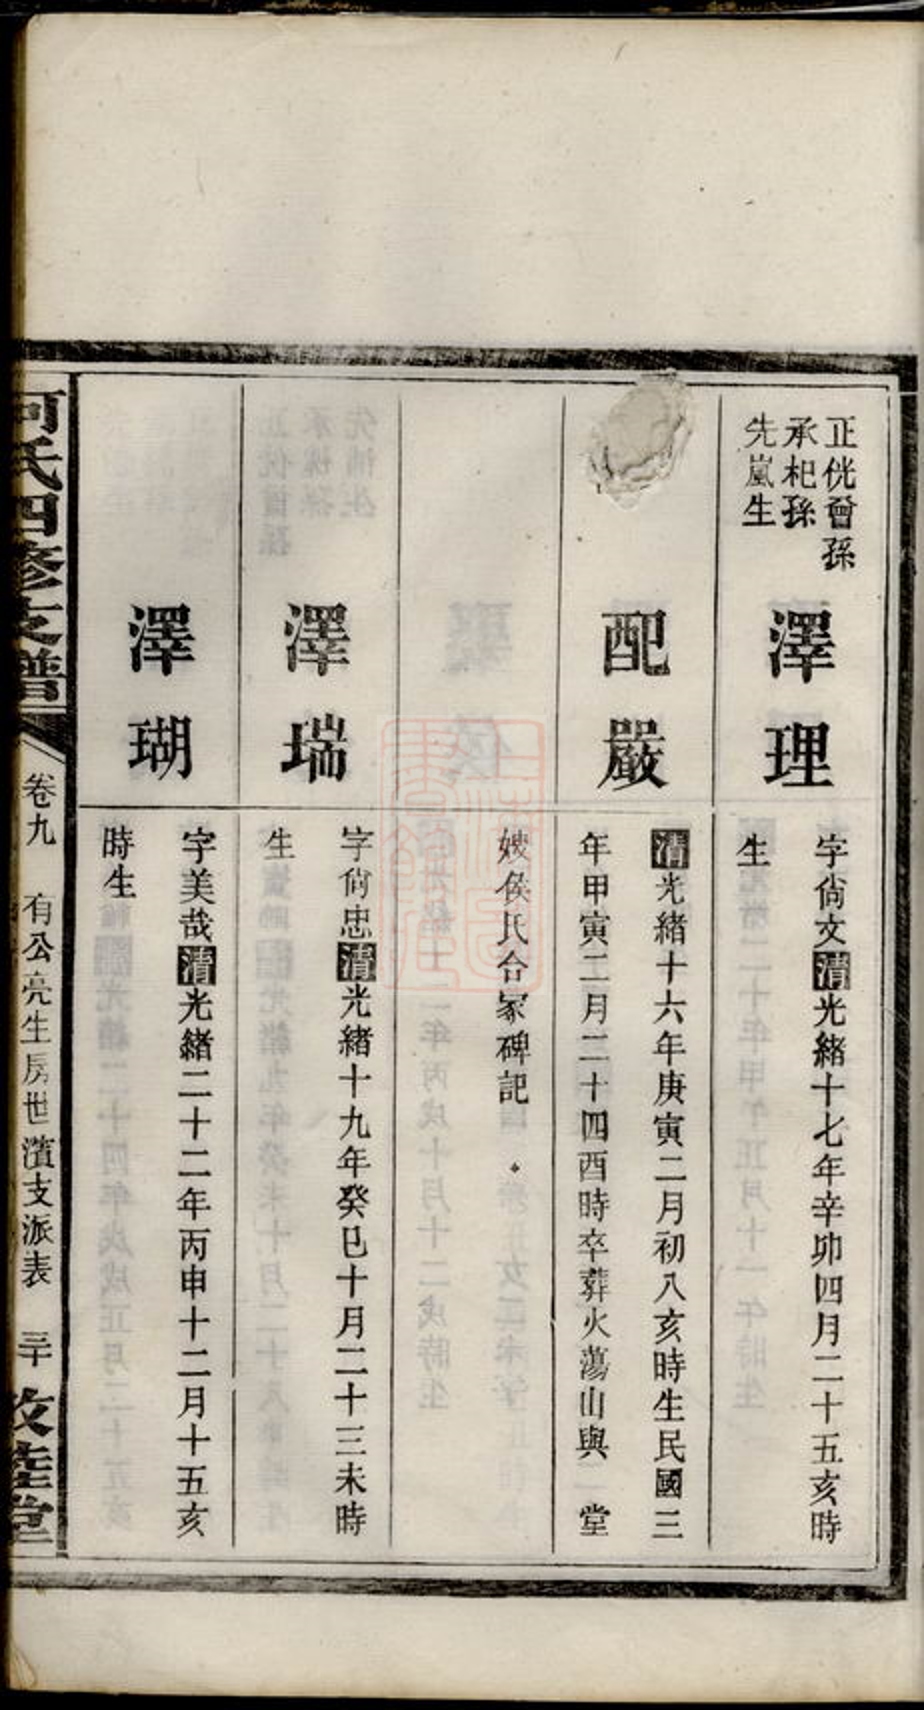 正侊曾孫
承杞孫
先嵐生
澤理
字尙文清光緒十七年辛卯四月二十五亥時
生
配嚴
清光緒十六年庚寅二月初八亥時生民國三
年甲寅二月二十四酉時卒葬火蕩山與 堂
嫂侯氏合冢碑記
澤瑞
字尙忠清光緒十九年癸巳十月二十三未時
生
澤瑚
字美哉清光緒二十二年丙申十二月十五亥
時生
何氏四修支譜
卷九 有公亮生房世濱支派表 三十
敦睦堂